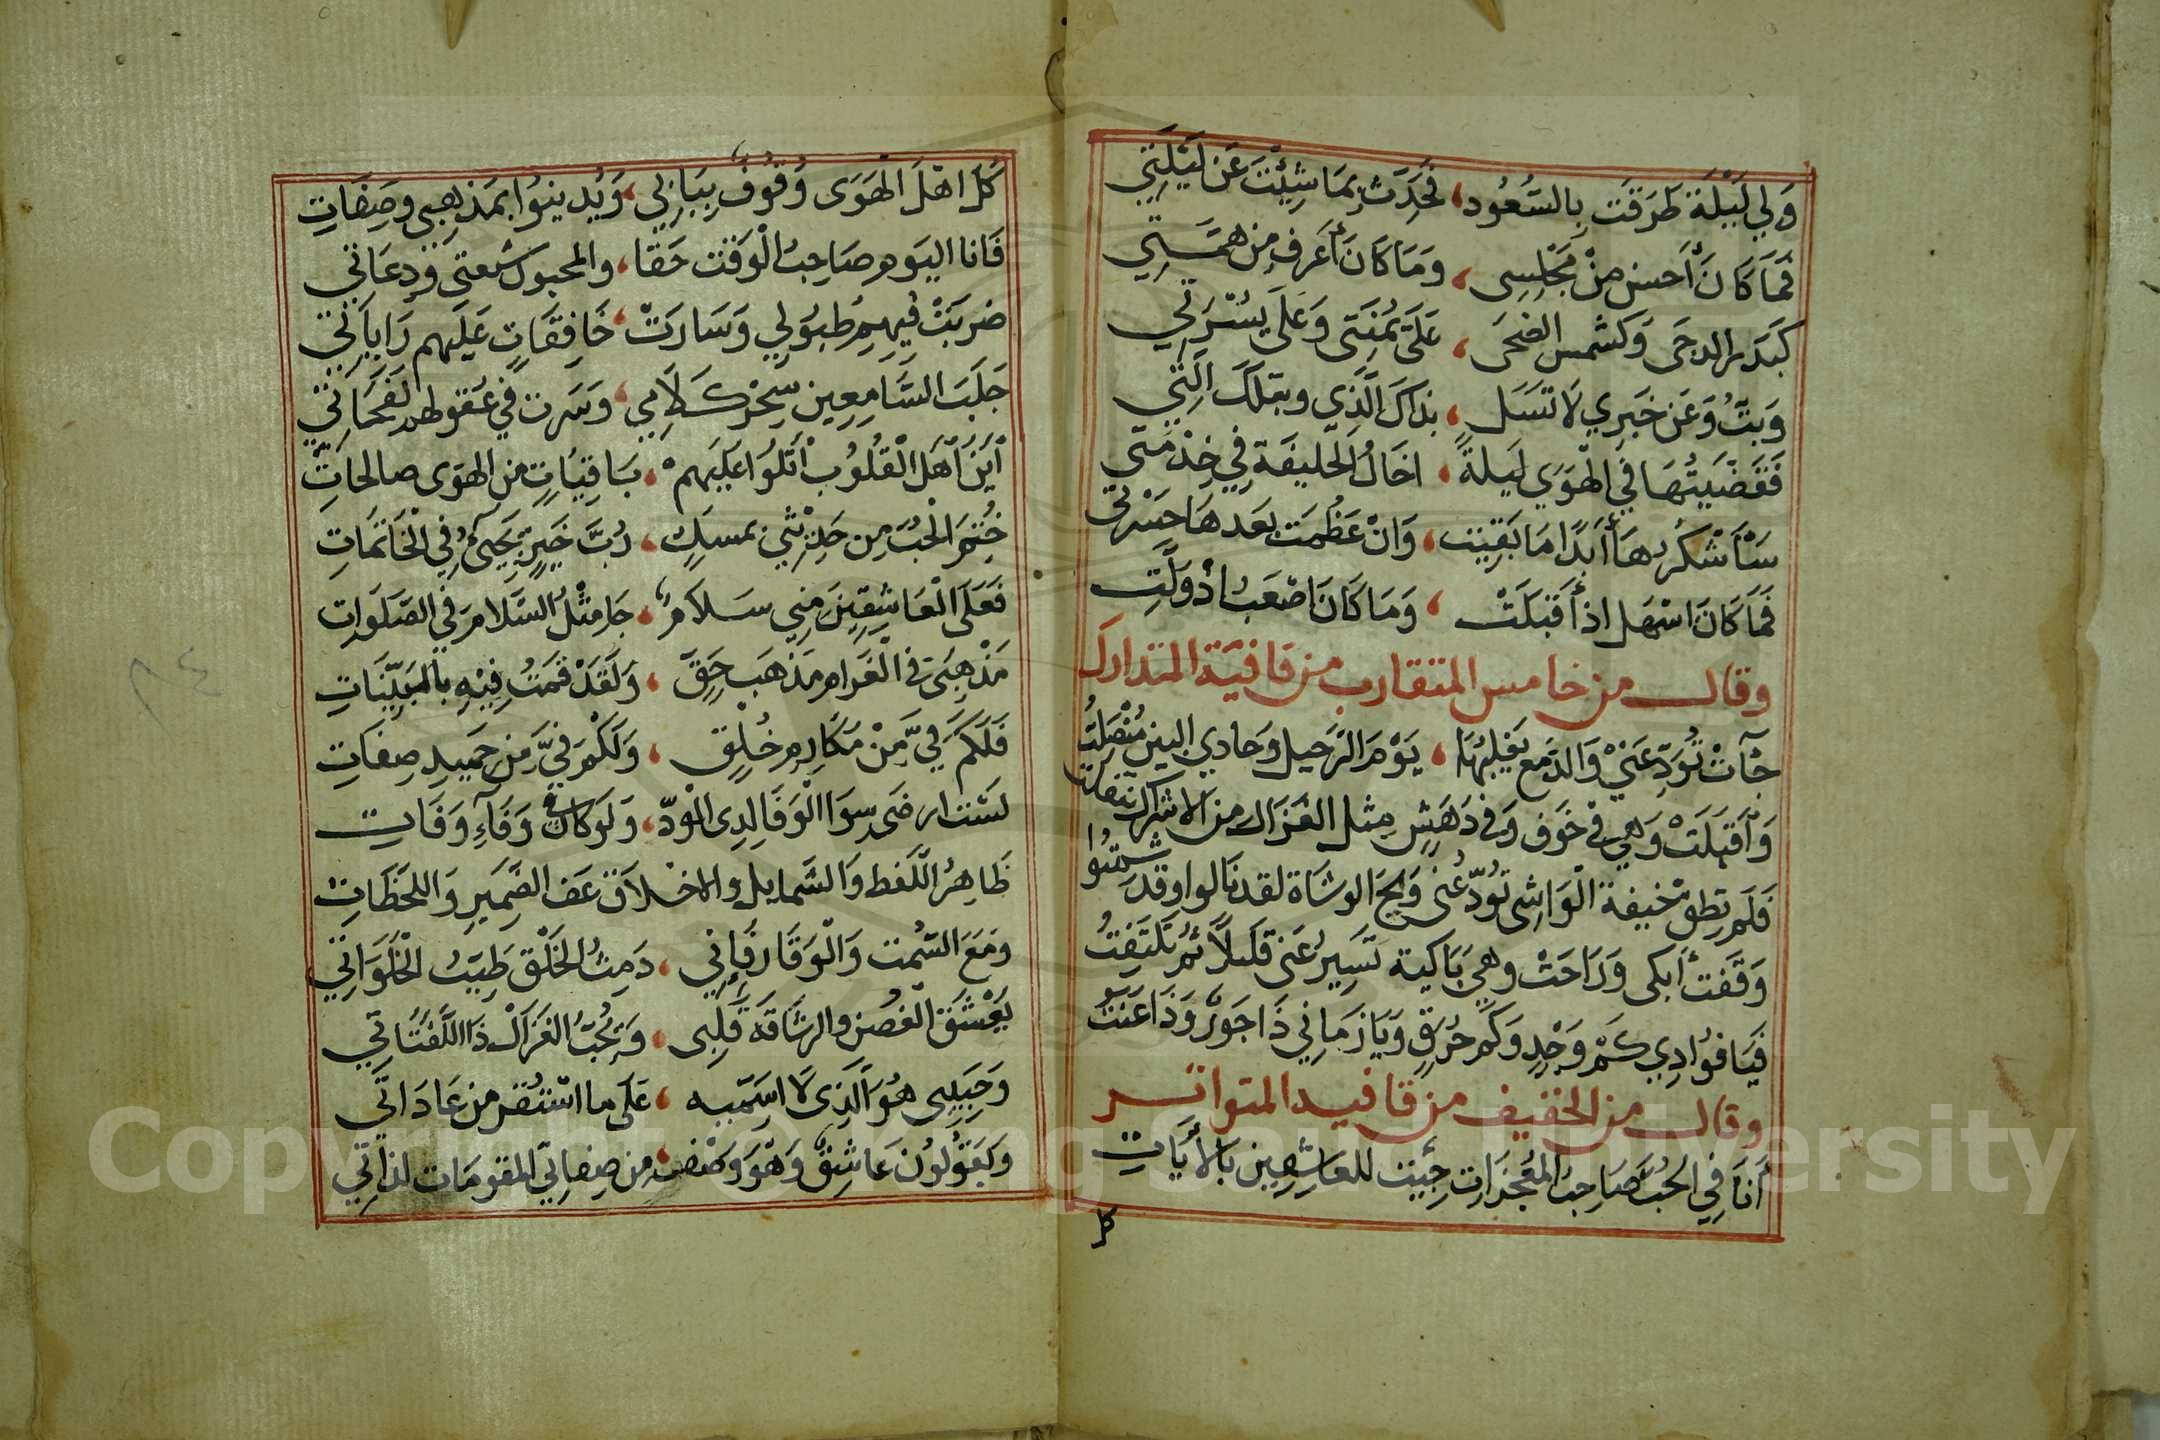 وَلِي لَيْلَة طَرَقَت بِالسُّعُود، فَحَدِّث بِمَا شِئْتَ عَن لَيْلَتِي
فَمَا كَانَ أَحسن مِنْ مَجْلِسِي، وَمَا كَانَ أَعرف مِن همَّتِي
كبَدر الدجَى وَكَشَمس الضحَى، عَلَى يُمْنَتِي وَعَلَى يُسْرَتِي
وَبتُّ وَعَن خَبَرِي لَا تَسَل، بذاكَ الَّذِي وبتلكَ الَّتِي
فَقَضَيتُهَا في الهَوَى لَيلةً، اخَالُ الخليفَة فِي خِدْمَتي
سَأَشْكُرهَا أَبَدًا مَا بَقِيَت، وَانْ عَظُمَت بَعدهَا حَسْرتي
فَمَا كَانَ اسْهَل اذ أَقبَلَتْ، وَمَا كَانَ اصْعَبُ اذْ وَلَّتِ
وقال من خامس المتقارب من قافية المتدارك
جَآتْ تُوَدِّعَنِي وَالدَّمع يَغلِبُهَا، يَوْمَ الرَّحيل وحَادي البين مُنْصَلتُ
وَأَقبَلَتْ وَهي في خَوف وَفي دَهَشٍ مِثل الغزَال من الاشراك ينفلت
فَلَم تطق خيفة الْوَاشِي تُوَدّعُني وَيحَ الوشَاة لقد نَالوا وقد شمتوا
وَقَفت أَبكى وَرَاحَتْ وهِي بَاكية تَسِيرُ عَني قَليلاً ثُمَّ تَلتَفتُ
فَيَا فوُادِي كَمْ وَجْدٍ وَكَم حُرَقٍ وَيَا زمَانِي ذَا جَورٌ وَذَا عَنَتُ
وقال من الخفيف من قافيه المتواتر
أَنَا فِي الحُبِّ صَاحِبُ المُعْجزَاتِ جِئتُ للعَاشِقِين بالأَيَاتِ
كل
كُلّ اهْلَ الْهَوَى وُقُوفٌ بِبَابِي، وَيُدينوُا بمَذهَبِي وصِفَاتِ
فَانا اليَوم صَاحِبُ الْوَقت حَقا، والمحبون شيعَتي وَدعَاتي
ضربَتْ فِيهِم طبُولِي وَسَارَتْ، خَافِقَاتٍ عَلَيهم رَايَاتي
جَلبَ السَّامِعِين سِحْر كَلَامِي، وَسَرت فِي عُقولهم نَفَحَاتي
أَيْنَ أَهَلَ الْقُلُوب أَتلوُا عَلَيهم، بَاقيَاتٍ من الهَوى صالحَاتِ
خُتِمَ الْحُبّ مِن حَديْثي بمسكٍ، رُبَّ خَيرٍ يَجيءُ فِي الْخَاتمَاتِ
فَعَلَى الْعَاشِقِينَ مِنِي سَلاَمٌ، جَا مثْلُ السَّلام في الصَلَوات
مَذْهبَي في الْغَرام مَذهَب حَقٍّ، وَلَقَدْ قمتُ فِيْهِ بالبَيّنَاتِ
فَلَكَم فِيَّ مِنْ مَكَارم خُلْقٍ، وَلَكَمْ فِيَّ مِن حَميدِ صِفَاتِ
لسَت ارضَى سِوَا الْوَفَا لذِي الْودّ، وَلَو كان في وَفَآءِ وَفَاتي
ظَاهِرُ اللَّفظ وَالشَّمايل والاخْلَاق عَف الضَّمِير وَاللحَظَات
وَمَعَ السَّمت وَالْوَقَار فَإِنِي، دَمِثُ الخَلْق طَيّبُ الخَلوَاتي
يَعْشَق الْغُصن والرشَاقَة قَلبي، وَيُحبُّ الغزَال ذَا اللَّفتَاتي
وَحَبيبي هُوَ الَّذي لَا اسَمّيه، عَلَى ما اسْتَقر من عَادَاتي
وَيَقُولُونَ عَاشِقٌ وَهْوَ وَصْف، مِن صِفاتِي المقومَات لذاتِي